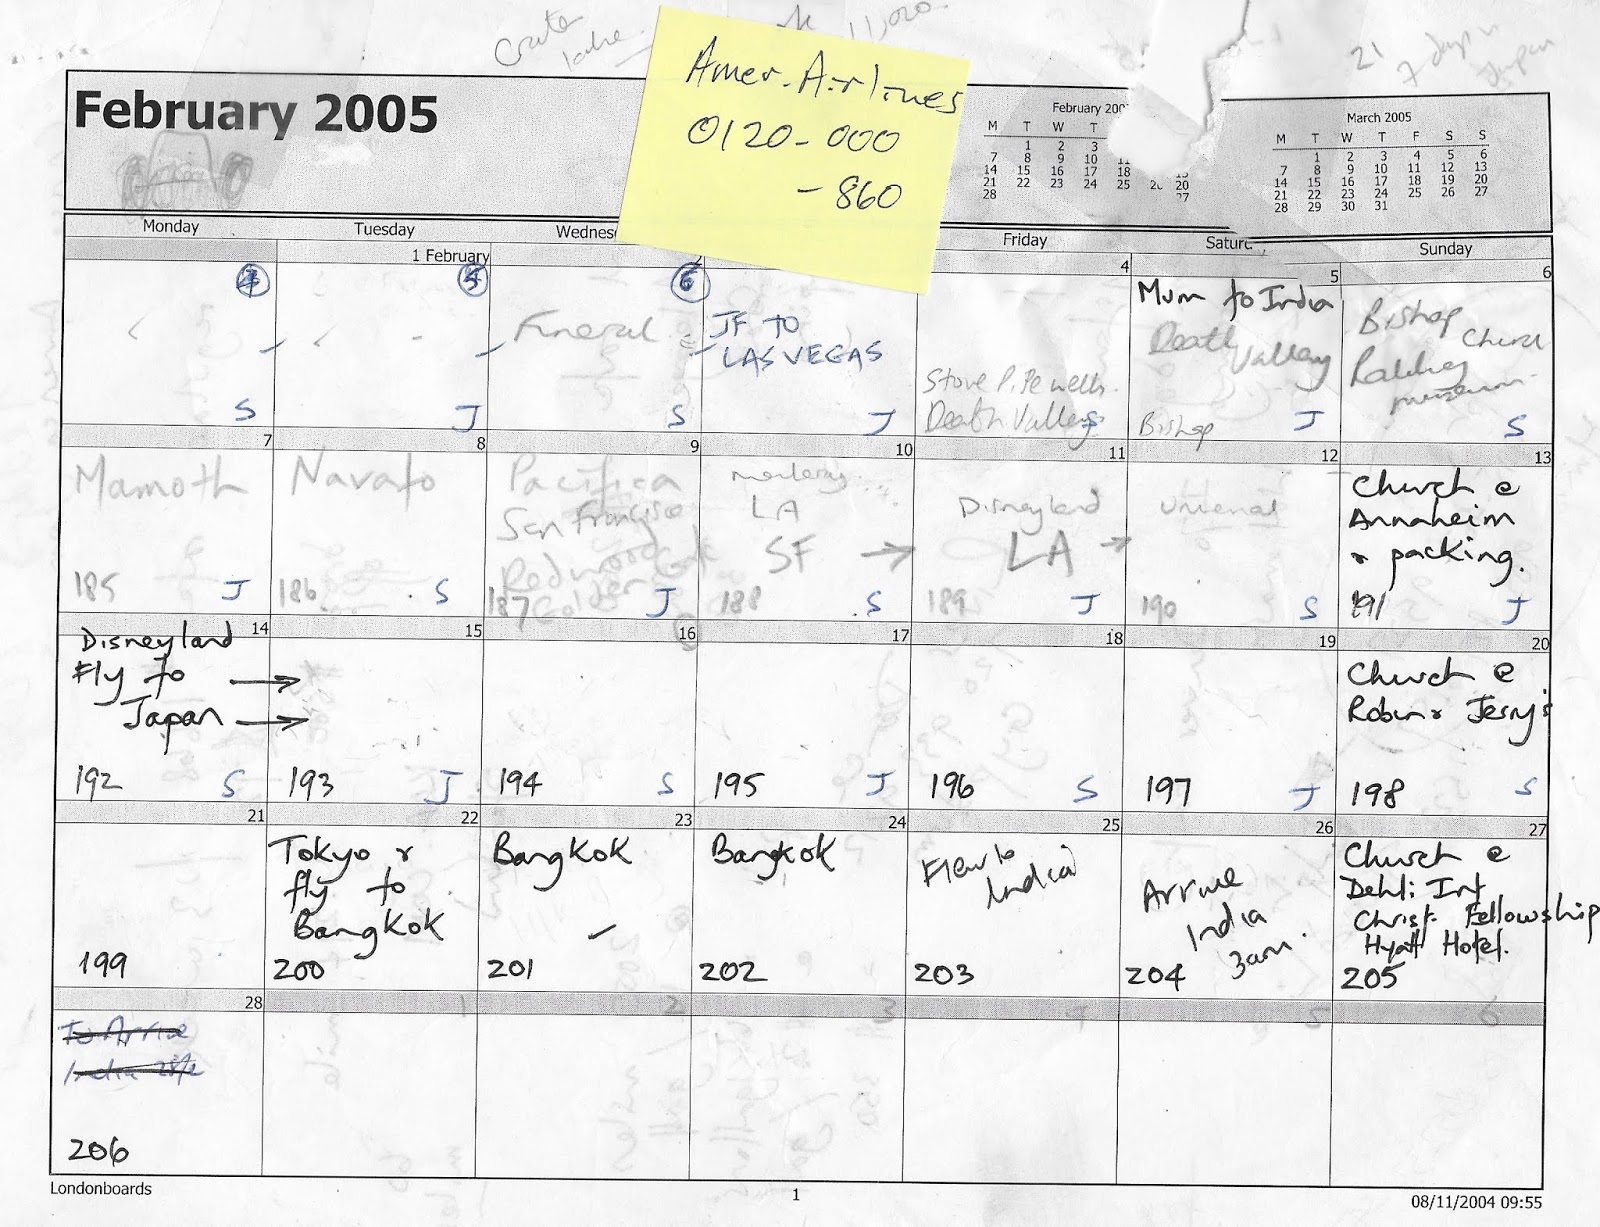 Crater
lake
11,020
21
7 days in
Japan
Amer. Airlines
0120-000
-860
February 2005
February 200
M T W T
1 2 3
7 8 9 10 11
14 15 16 17 18
21 22 23 24 25 20
28 27
March 2005
M T W T F S S
1 2 3 4 5 6
7 8 9 10 11 12 13
14 15 16 17 18 19 20
21 22 23 24 25 26 27
28 29 30 31
Monday Tuesday Wednes Friday Satur Sunday
1 February 2 4 5 6
5 6
Funeral
JF TO
LAS VEGAS
Stove P.Pe wells.
Death Valley
Mum to India
Death
Valley
Bishop
Bishop
Church
museum
S J S J S J S
7 8 9 10 11 12 13
Mamoth
185 J
Navato
186 S
Pacifica
San Francisco
Redwood
Golden
187 J
monterey
LA
SF →
188 S
Disneyland
LA →
189 J
Universal
190 S
Church @
Annaheim
& packing.
191 J
14 15 16 17 18 19 20
Disneyland
Fly to →
Japan →
192 S
193 J
194 S
195 J
196 S
197 J
Church @
Robin & Jerry's
198 S
21 22 23 24 25 26 27
199
Tokyo &
fly to
Bangkok
200
Bangkok
201
Bangkok
202
Flew to
India
203
Arrive
India
3am.
204
Church @
Dehli Int
Christ. Fellowship
Hyatt Hotel.
205
28 1 2 3 4 5 6
To Arrive
India 28/2
206
Londonboards
1
08/11/2004 09:55